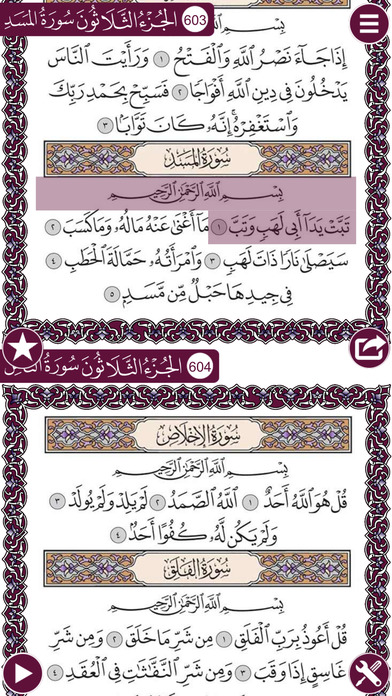 603 الجُزْءُ الثَّلَاثُونَ سُورَةُ المَسَدِ
بِسْمِ اللَّهِ الرَّحْمَٰنِ الرَّحِيمِ
إِذَا جَآءَ نَصْرُ اللَّهِ وَالْفَتْحُ ١ وَرَأَيْتَ النَّاسَ
يَدْخُلُونَ فِي دِينِ اللَّهِ أَفْوَاجًا ٢ فَسَبِّحْ بِحَمْدِ رَبِّكَ
وَاسْتَغْفِرْهُ ۚ إِنَّهُ كَانَ تَوَّابًا ٣
سُورَةُ المَسَدِ
بِسْمِ اللَّهِ الرَّحْمَٰنِ الرَّحِيمِ
تَبَّتْ يَدَآ أَبِي لَهَبٍ وَتَبَّ ١ مَآ أَغْنَىٰ عَنْهُ مَالُهُ وَمَا كَسَبَ ٢
سَيَصْلَىٰ نَارًا ذَاتَ لَهَبٍ ٣ وَامْرَأَتُهُ حَمَّالَةَ الْحَطَبِ ٤
فِي جِيدِهَا حَبْلٌ مِّن مَّسَدٍ ٥
604 الجُزْءُ الثَّلَاثُونَ سُورَةُ
سُورَةُ الإِخْلَاصِ
بِسْمِ اللَّهِ الرَّحْمَٰنِ الرَّحِيمِ
قُلْ هُوَ اللَّهُ أَحَدٌ ١ اللَّهُ الصَّمَدُ ٢ لَمْ يَلِدْ وَلَمْ يُولَدْ ٣
وَلَمْ يَكُن لَّهُ كُفُوًا أَحَدٌ ٤
سُورَةُ الفَلَقِ
بِسْمِ اللَّهِ الرَّحْمَٰنِ الرَّحِيمِ
قُلْ أَعُوذُ بِرَبِّ الْفَلَقِ ١ مِن شَرِّ مَا خَلَقَ ٢ وَمِن شَرِّ
غَاسِقٍ إِذَا وَقَبَ ٣ وَمِن شَرِّ النَّفَّٰثَٰتِ فِي الْعُقَدِ ٤